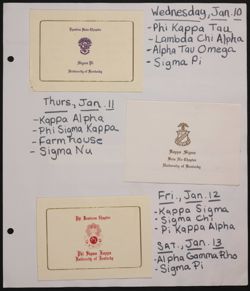 Wednesday, Jan. 10
- Phi Kappa Tau
- Lambda Chi Alpha
- Alpha Tau Omega
- Sigma Pi
Sigma Pi
University of Kentucky
Thurs., Jan. 11
- Kappa Alpha
- Phi Sigma Kappa
- Farm house
- Sigma Nu
Kappa Sigma
University of Kentucky
Fri., Jan. 12
- Kappa Sigma
- Sigma Chi
- Pi Kappa Alpha
Sat., Jan. 13
- Alpha Gamma Rho
- Sigma Pi
Phi Deuteron Chapter
Phi Sigma Kappa
University of Kentucky